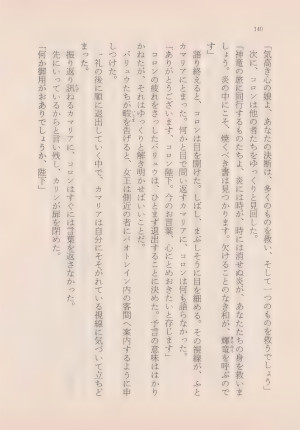 140
「気高き心の娘よ、あなたの決断は、多くのものを救い、そして一つのものを救うでしょう」
次に、コロンは他の者たちをゆっくりと見回した。
「神竜の娘に同行するものたちよ、炎には時が、時には消せぬ炎が、あなたたちの身を救いま
しょう。炎の中にこそ、輝くべき書は見つかります。欠けることのなき和が、輝竜を呼ぶので
す」
語り終えると、コロンは目を開けた。しばし、まぶしそうに目を細める。その視線が、ふと
カマリアにとまった。何かと目で問い返すカマリアに、コロンは何も語らなかった。
「ありがとうございます、コロン陛下。今のお言葉、心にとめおきたいと存じます」
コロンの疲れをさっしたバリュウは、ひとまず退出することに決めた。予言の意味ははかり
かねたが、それはゆっくりと解き明かせばいいことだ。
バリュウたちが暇を告げると、女王は側近の者にパオトレイン内の客間へ案内するように申
し付けた。
一礼の後に順に退出していく中で、カマリアは自分にそそがれている視線に気づいて立ちど
まった。
振り返り訊ねるカマリアに、コロンはすぐには言葉を返さなかった。
先にいっているからと言い残し、カリンが扉を閉めた。
「何か御用がおありでしょうか、陛下」